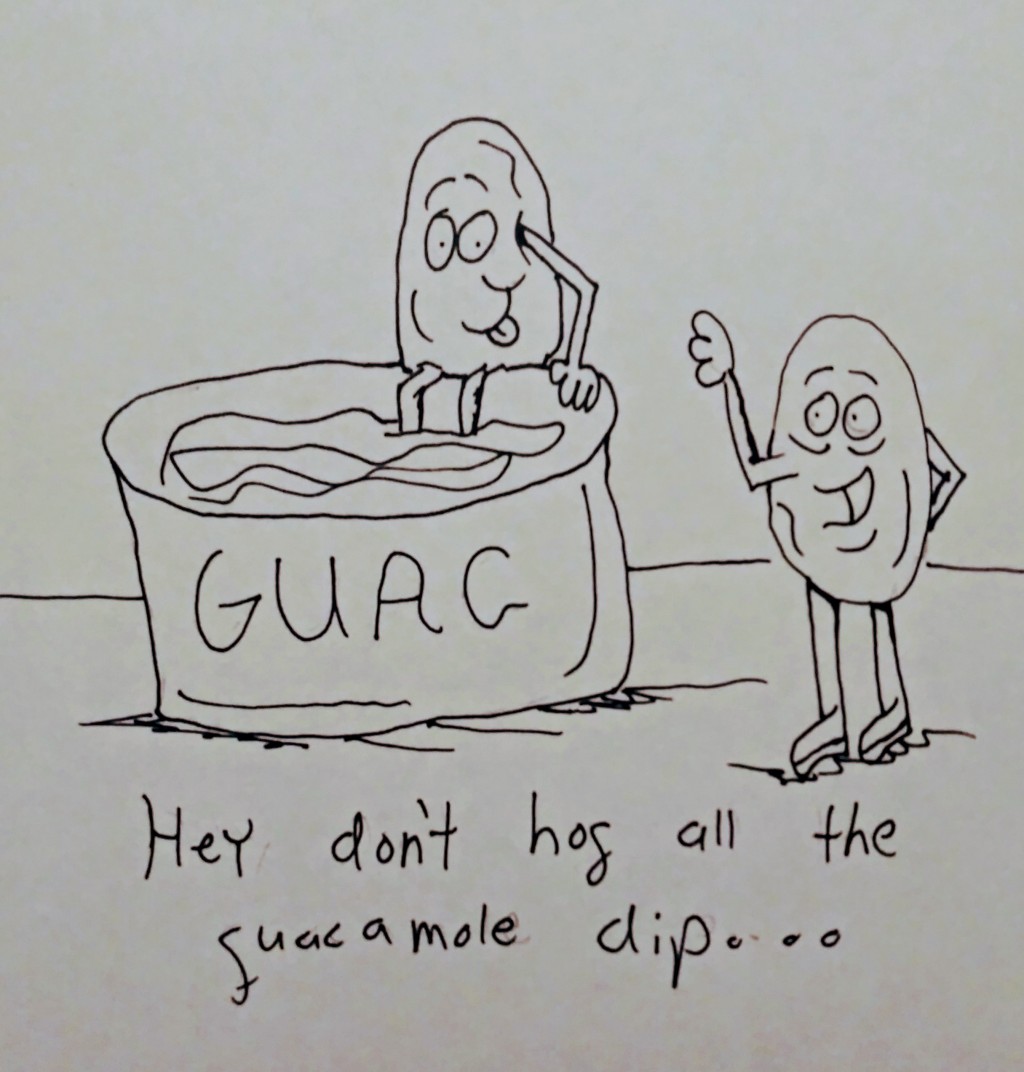 GUAC
Hey don't hog all the
guacamole dip....